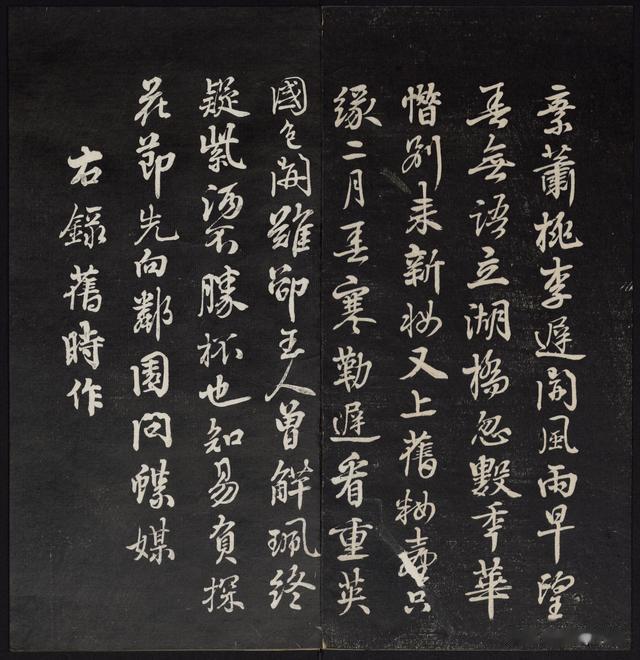 蕭桃李遲開風雨早望
春無語立湖橋忽數秊華
憯別來新妝又上舊妝臺只
緣二月春寒勒遲看重英
國色開難卻玉人曾解珮終
疑紫酒不勝杯也知易負探
花節先向鄰園問蝶媒
右錄舊時作